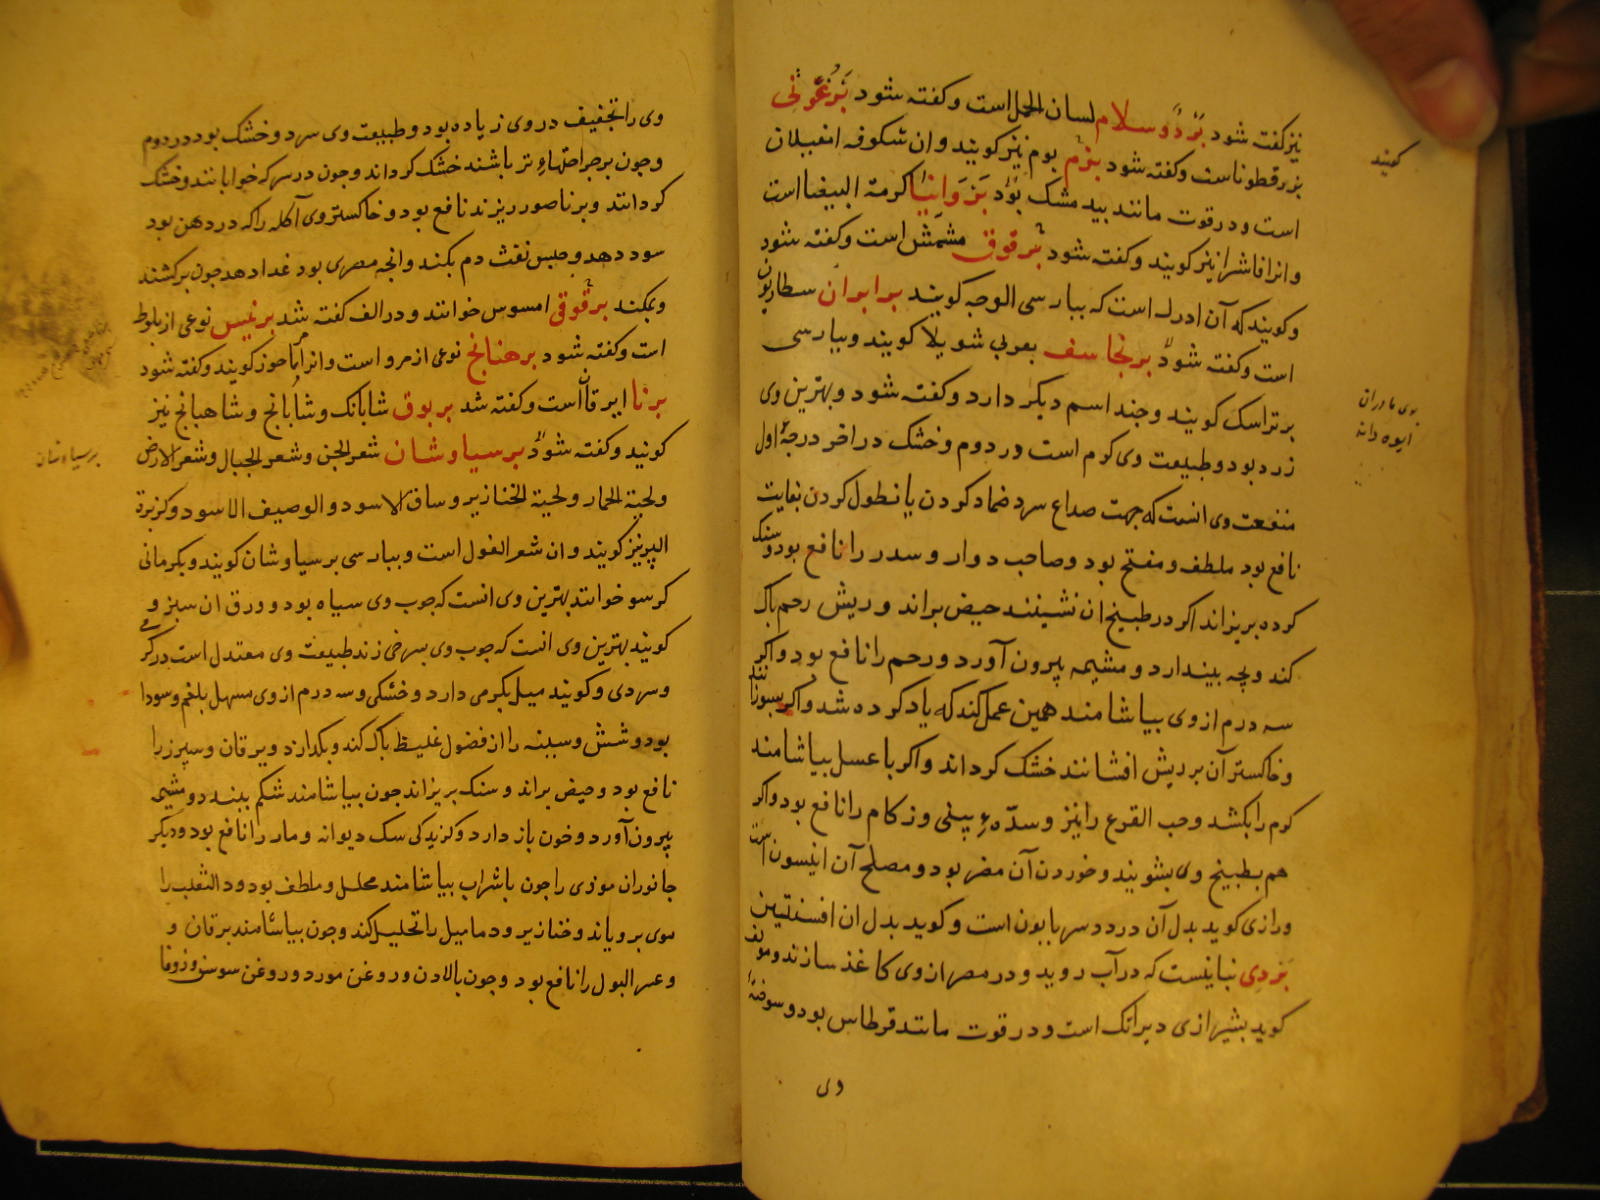 نیز کفته شود بَرْدً وسلام لسان الحمل است و کفته شود بَرْغُوثِی
بزرقطوناست و کفته شود بزم بوم نیز کویند و ان شکوفه ام غیلان
است و در قوت مانند بید مشک بود بَزوانیا کرمة البیضا است
و انرا فاشرا نیز کویند و کفته شود برقوق مشمش است و کفته شود
و کویند که آن ادرک است که بپارسی الوجه کویند برابران سطاریون
است و کفته شود برنجاسف بعربی شویلا کویند و بپارسی
برتراسک کویند و چند اسم دیکر دارد و کفته شود و بهترین وی
زرد بود و طبیعت وی کرم است در دوم و خشک در اخر درجۀ اول
منفعت وی انست که جهت صداع سرد ضماد کردن یا نطول کردن بغایت
نافع بود ملطف و مفتح بود و صاحب دوار و سدر را نافع بود و سنک
کرده بریزاند اکر در طبیخ ان نشینند حیض براند و ریش رحم پاک
کند و بچه بیندازد و مشیمه بیرون آورد و رحم را نافع بود و اکر
سه درم از وی بیاشامند همین عمل کند که یاد کرده شد و اکر بسوزانند
و خاکستر آن بر ریش افشانند خشک کرداند و اکر با عسل بیاشامند
کرم را بکشد و حب القرع را نیز و سدّهٔ بینی و زکام را نافع بود و اکر
هم بطبیخ وی بشویند و خوردن آن مضر بود و مصلح آن انیسون است
و رازی کوید بدل آن در درد سر بابون است و کوید بدل ان افسنتین
بَردِی نباتیست که در آب روید و در مصر از وی کاغذ سازند و مولف
کوید بشیرازی دیراتک است و در قوت مانند قرطاس بود و سوخته
وی
کویند
بوی مادران
وی را تجفیف در وی زیاده بود و طبیعت وی سرد و خشک بود در دوم
و چون بر جراحتهاء تر باشند خشک کرداند و چون در سرکه خوابانند و خشک
کردانند و بر ناصور ریزند نافع بود و خاکستر وی آکله را که در دهن بود
سود دهد و حبس نفث دم بکند و انچه مصری بود غدا دهد چون برکشند
و بمکند برقوقی امسوس خوانند و در الف کفته شد برنمیس نوعی از بلوط
است و کفته شود برهنانج نوعی از مرو است و انرا مرماحوز کویند و کفته شود
برنا ایرقان است و کفته شد بربوق شابانک و شابانج و شاهبانج نیز
کویند و کفته شود برسیاوشان شعر الجن و شعر الجبال و شعر الارض
و لحیة الحمار و لحیة الخنازیر و ساق الاسود و الوصیف الاسود و کزبرة
البیر نیز کویند و ان شعر الغول است و بپارسی برسیاوشان کویند و بکرمانی
کرسو خوانند بهترین وی انست که چوب وی سیاه بود و ورق ان سبز و
کویند بهترین وی انست که چوب وی بسرخی زند طبیعت وی معتدل است در کرمی
و سردی و کویند میل بکرمی دارد و خشکی و سه درم از وی مسهل بلغم و سودا
بود و شش و سینه را از فضول غلیظ پاک کند و بکدازد و یرقان و سپرز را
نافع بود و حیض براند و سنک بریزاند چون بیاشامند شکم ببندد و مشیمه
بیرون آورد و خون باز دارد و کزیدکی سک دیوانه و مار را نافع بود و دیکر
جانوران موذی را چون باشراب بیاشامند محلل و ملطف بود و داء الثعلب را
موی برویاند و خنازیر و دمامیل را تحلیل کند و چون بیاشامند یرقان و
و عسر البول را نافع بود و چون بالادن و روغن مورد و روغن سوسن و زوفا
برسیاوشان